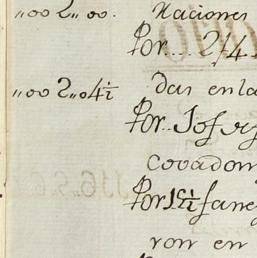 ,,00 2,,00. Naciones
Por... 2/4
,,00 2,,04½ das en la
Por... Josef
covadon
Por 1½ fane
ron en